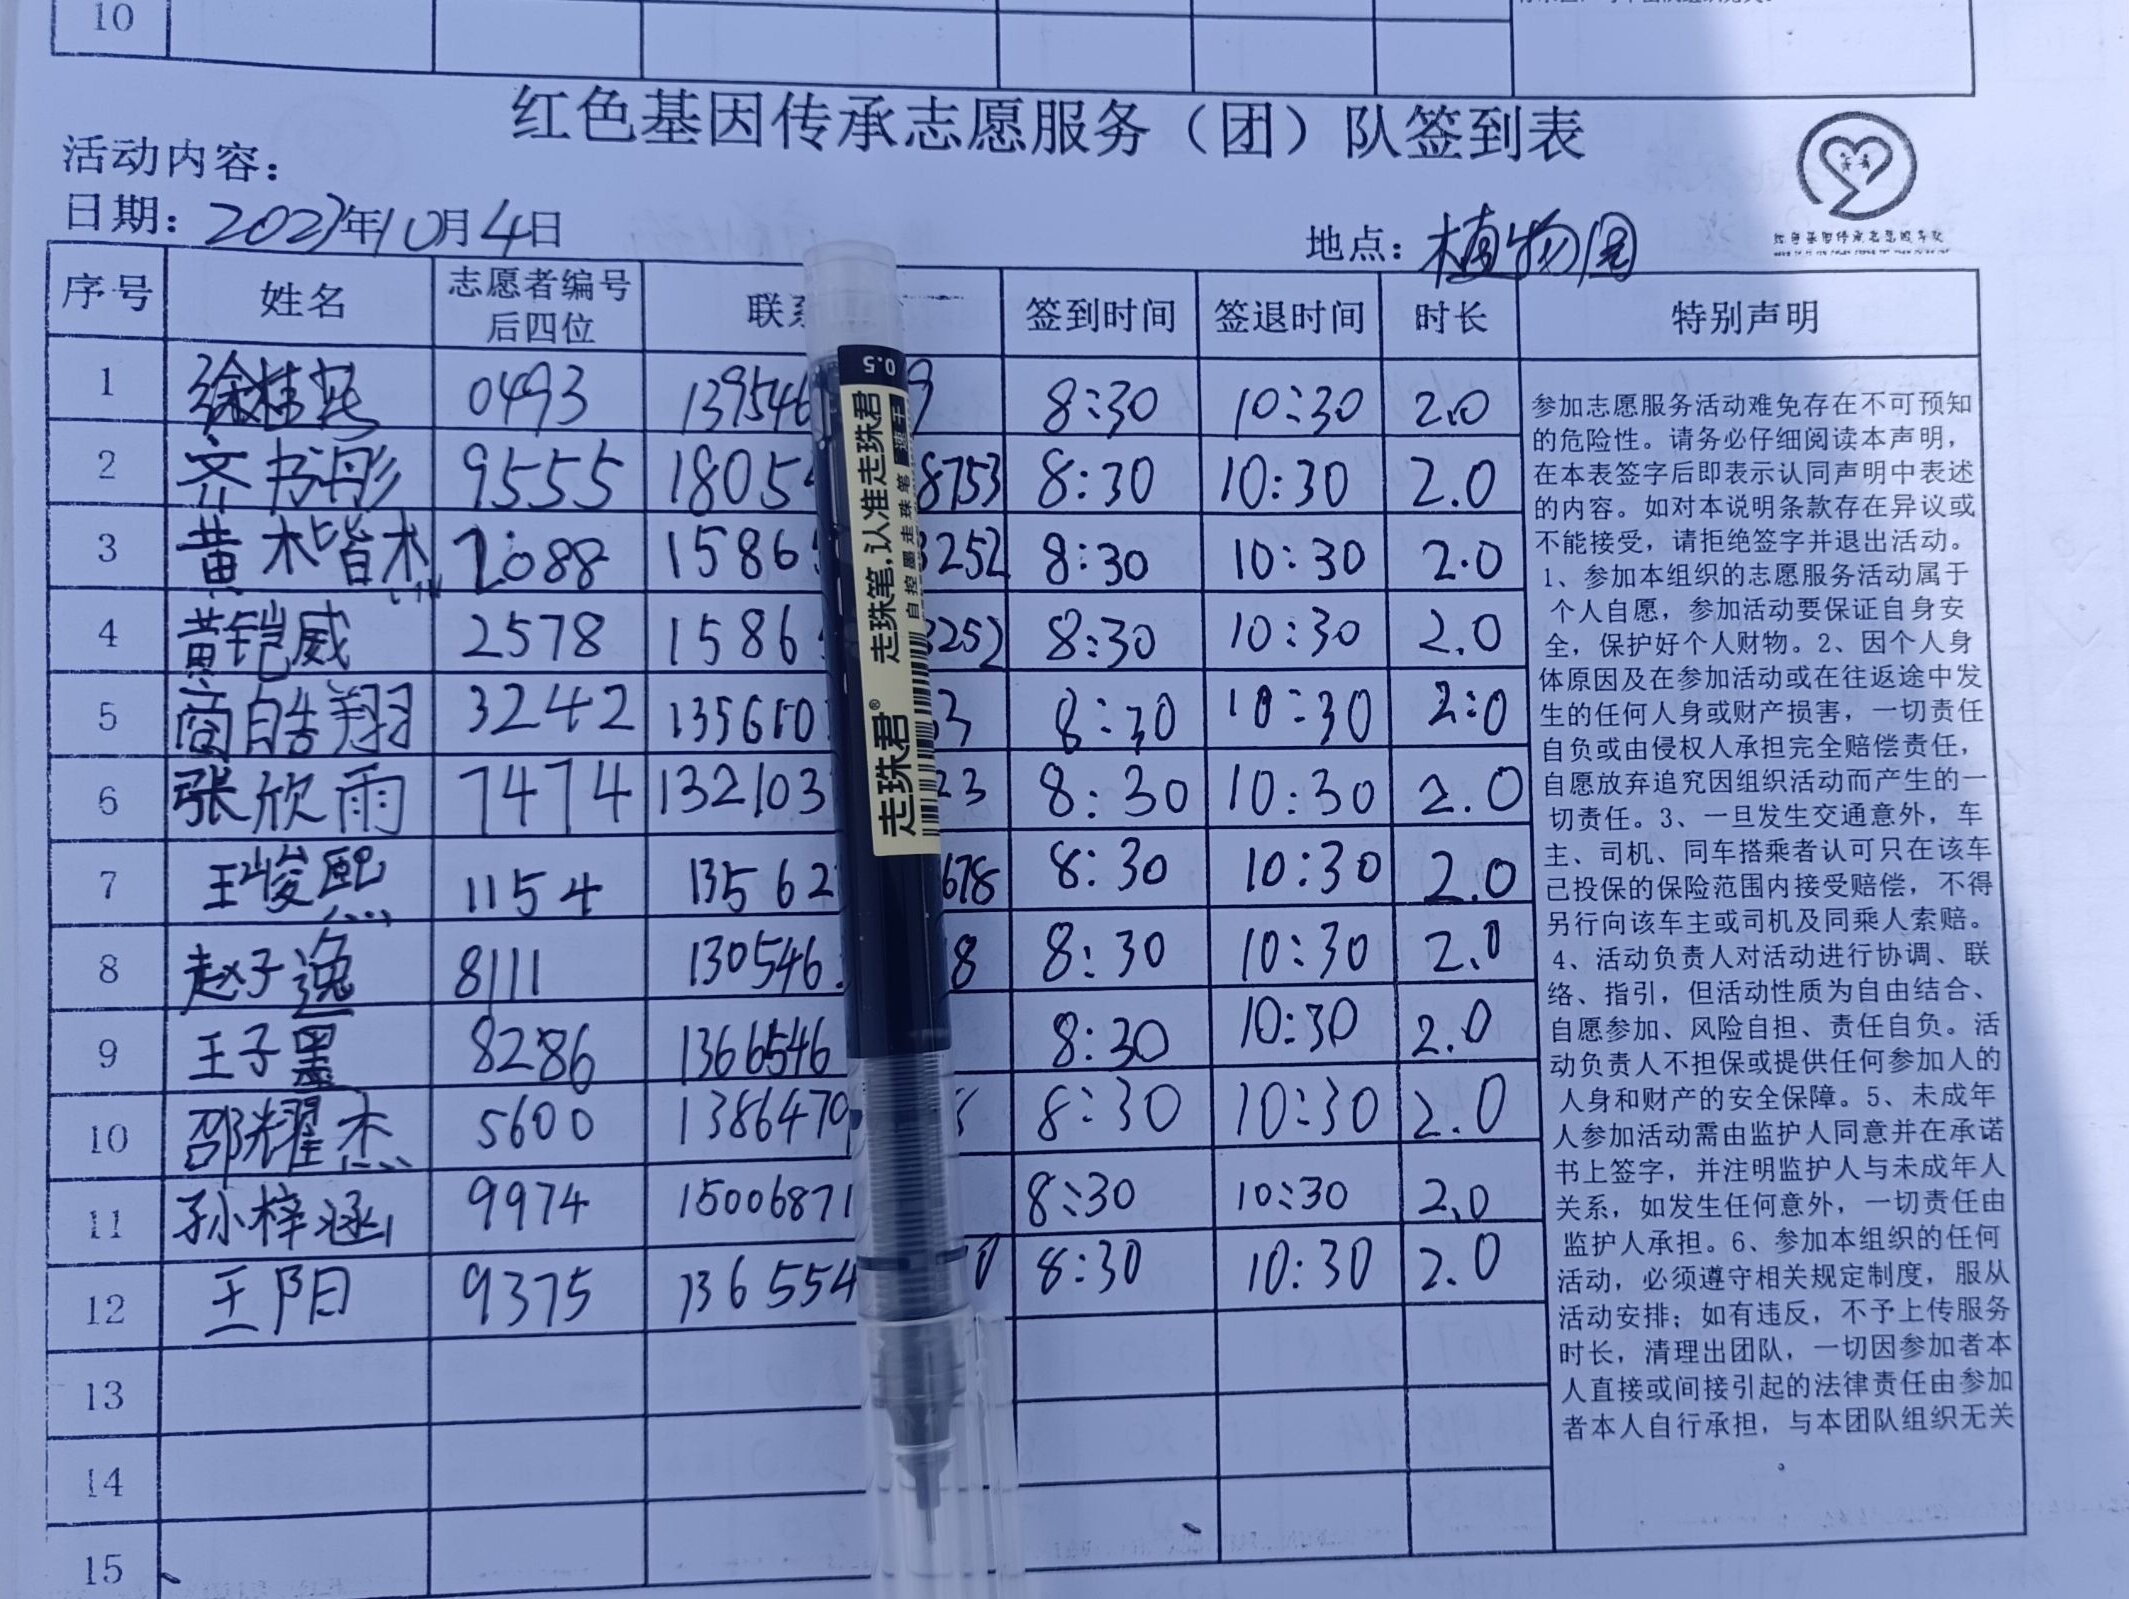 10
红色基因传承志愿服务（团）队签到表
活动内容：
日期：2023年10月4日
地点：植物园
红色基因传承志愿服务队
序号 姓名 志愿者编号后四位 联系 签到时间 签退时间 时长 特别声明
1 徐桂花 0493 139546 9 8:30 10:30 2.0
2 齐书彤 9555 1805 8753 8:30 10:30 2.0
3 黄楷林 2088 1586 3252 8:30 10:30 2.0
4 黄铠威 2578 1586 3252 8:30 10:30 2.0
5 商皓翔 3242 135610 33 8:30 10:30 2:0
6 张欣雨 7474 132103 23 8:30 10:30 2.0
7 王峻熙 1154 13562 678 8:30 10:30 2.0
8 赵子逸 8111 130546 8 8:30 10:30 2.0
9 王子墨 8286 1366546 8:30 10:30 2.0
10 邵耀杰 5600 1386479 8:30 10:30 2.0
11 孙梓涵 9974 15006871 8:30 10:30 2.0
12 王阳 9375 136554 0 8:30 10:30 2.0
13
14
15
参加志愿服务活动难免存在不可预知
的危险性。请务必仔细阅读本声明，
在本表签字后即表示认同声明中表述
的内容。如对本说明条款存在异议或
不能接受，请拒绝签字并退出活动。
1、参加本组织的志愿服务活动属于
个人自愿，参加活动要保证自身安
全，保护好个人财物。2、因个人身
体原因及在参加活动或在往返途中发
生的任何人身或财产损害，一切责任
自负或由侵权人承担完全赔偿责任，
自愿放弃追究因组织活动而产生的一
切责任。3、一旦发生交通意外，车
主、司机、同车搭乘者认可只在该车
已投保的保险范围内接受赔偿，不得
另行向该车主或司机及同乘人索赔。
4、活动负责人对活动进行协调、联
络、指引，但活动性质为自由结合、
自愿参加、风险自担、责任自负。活
动负责人不担保或提供任何参加人的
人身和财产的安全保障。5、未成年
人参加活动需由监护人同意并在承诺
书上签字，并注明监护人与未成年人
关系，如发生任何意外，一切责任由
监护人承担。6、参加本组织的任何
活动，必须遵守相关规定制度，服从
活动安排；如有违反，不予上传服务
时长，清理出团队，一切因参加者本
人直接或间接引起的法律责任由参加
者本人自行承担，与本团队组织无关
。
0.5
走珠君® 走珠笔,认准走珠君
自控墨走珠笔 速干